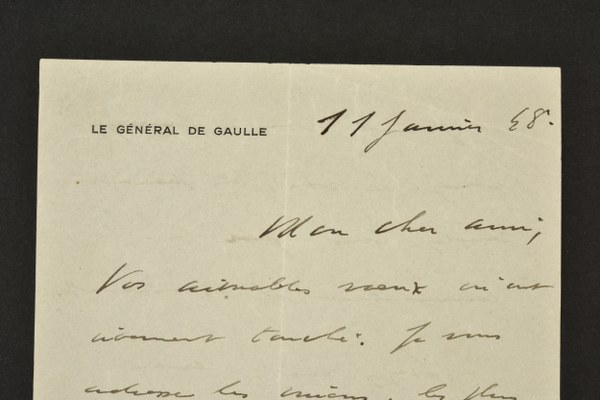 LE GÉNÉRAL DE GAULLE
11 Janvier 48.
Mon cher ami,
Vos aimables vœux m'ont
vivement touché. Je vous
adresse les miens, les plus